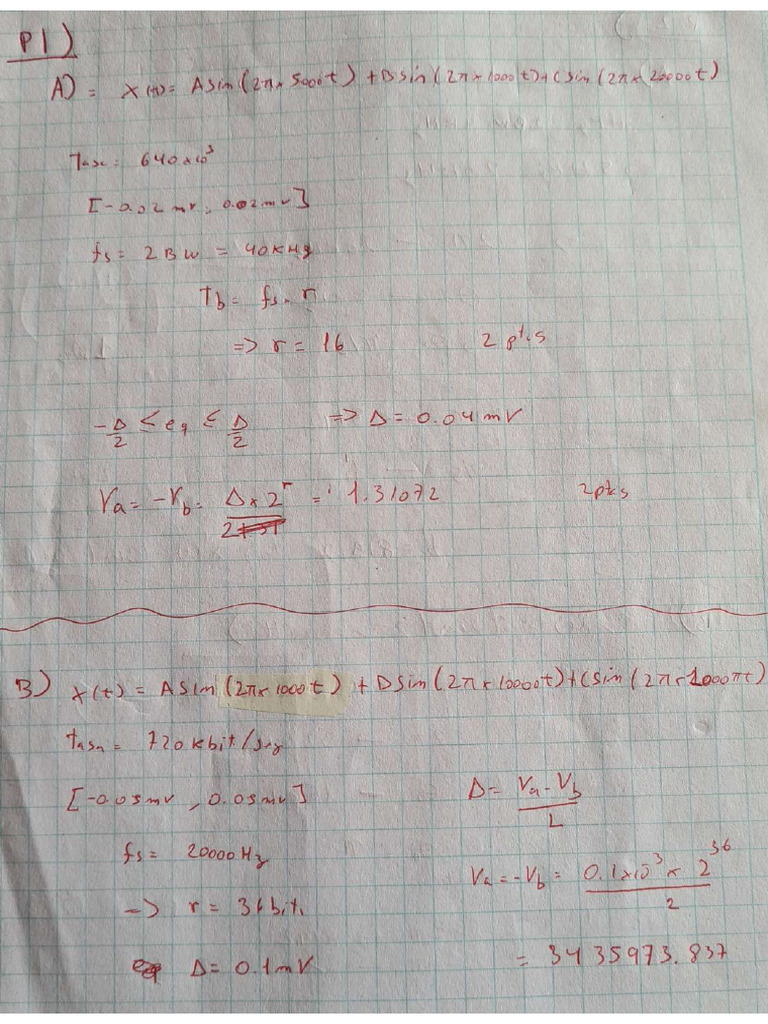 P1)
A) = X(t) = A sin(2π × 5000t) + B sin(2π × 1000t) + C sin(2π × 20000t)
Tasa = 640 × 10³
[-0.02 mv, 0.02 mv]
fs = 2 B W = 40 KHz
Tb = fs · r
=> r = 16 2 pts
-Δ/2 ≤ eq ≤ Δ/2 => Δ = 0.04 mV
Va = -Vb = Δ × 2^r / 2 = 1.31072 2 pts
B) X(t) = A sin(2π × 1000t) + D sin(2π × 10000t) + C sin(2π × 1000πt)
tasa = 720 kbit/seg
[-0.05 mv, 0.05 mv]
fs = 20000 Hz
-> r = 36 bit,
Δ = 0.1 mV
Δ = (Va - Vb) / L
Va = -Vb = 0.1 × 10³ × 2^36 / 2
= 3435973.837